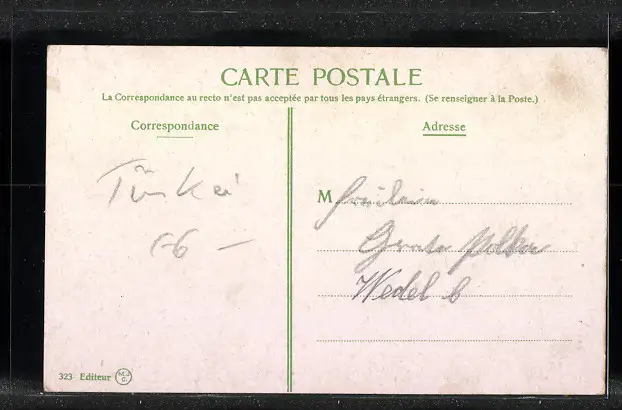 CARTE POSTALE
La Correspondance au recto n'est pas acceptée par tous les pays étrangers. (Se renseigner à la Poste.)
Correspondance
Adresse
Türkei
M Fräulein
Wedel b
323 Editeur M.J.C.